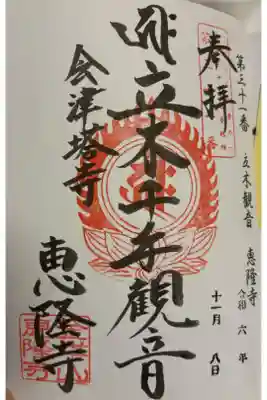 奉拝
第三十一番 立木観音 恵隆寺
令和六年
十一月八日
立木千手観音
会津塔寺
恵隆寺